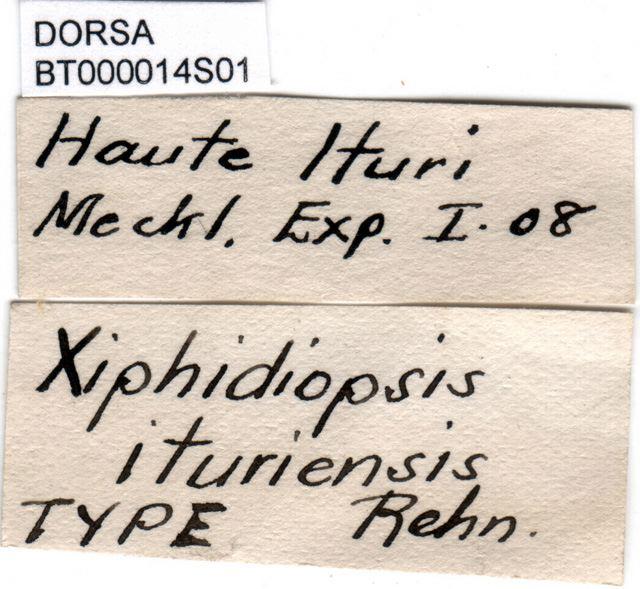 DORSA
BT000014S01
Haute Ituri
Meckl. Exp. I. 08
Xiphidiopsis
ituriensis
TYPE Rehn.